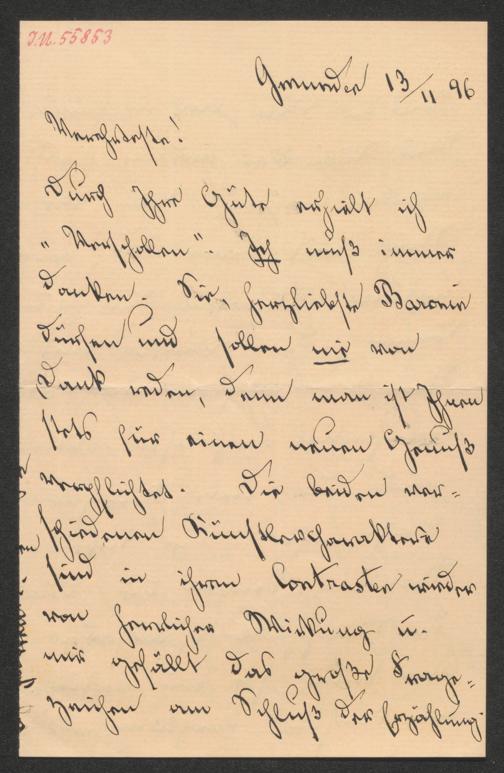 J.N. 55853
Gmunden 13/11 96
Verehrteste!
Durch Ihre Güte erhielt ich
„Verschollen". Ich muß immer
danken. Sie, herzliebste Baronin
dürfen und sollen nie von
Dank reden, denn man ist Ihnen
stets für einen neuen Genuß
verpflichtet. Die beiden ver=
schiedenen Künstlercharaktere
sind in ihrem Contraste wieder
von herrlicher Wirkung u.
mir gefällt das große Frage=
zeichen am Schluß der Erzählung.